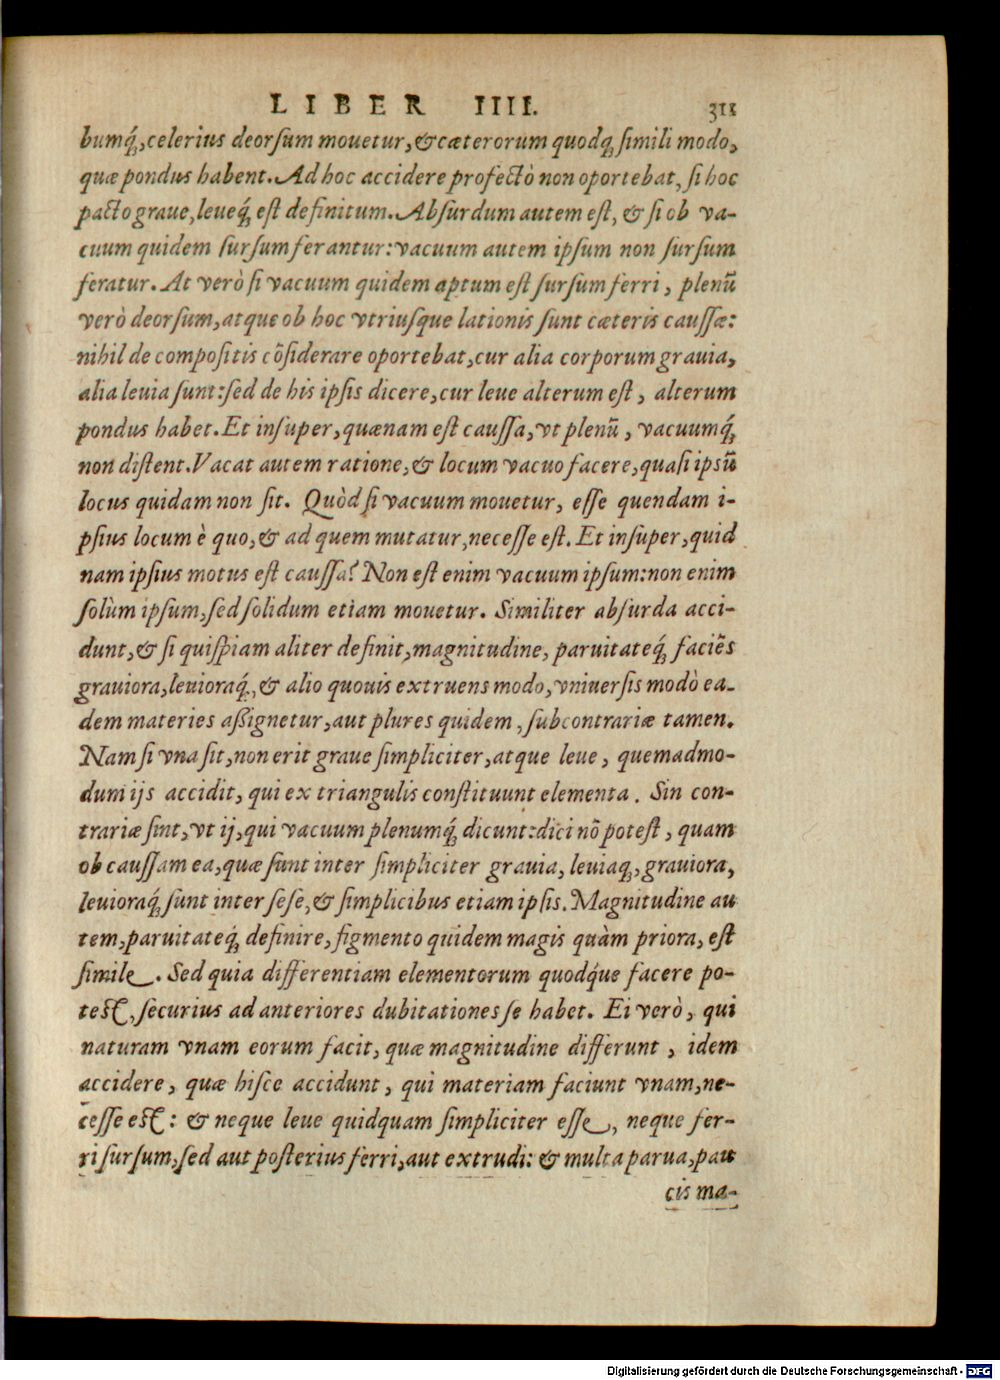 LIBER IIII. 311
bumq́;, celerius deorsum mouetur, & cæterorum quodq; simili modo,
quæ pondus habent. Ad hoc accidere profectò non oportebat, si hoc
pacto graue, leueq́; est definitum. Absurdum autem est, & si ob va-
cuum quidem sursum ferantur: vacuum autem ipsum non sursum
feratur. At verò si vacuum quidem aptum est sursum ferri, plenũ
verò deorsum, atque ob hoc vtriusque lationis sunt cæteris caussæ:
nihil de compositis cõsiderare oportebat, cur alia corporum grauia,
alia leuia sunt: sed de his ipsis dicere, cur leue alterum est, alterum
pondus habet. Et insuper, quænam est caussa, vt plenũ, vacuumq́;
non distent. Vacat autem ratione, & locum vacuo facere, quasi ipsũ
locus quidam non sit. Quòd si vacuum mouetur, esse quendam i-
psius locum è quo, & ad quem mutatur, necesse est. Et insuper, quid
nam ipsius motus est caussa? Non est enim vacuum ipsum: non enim
solùm ipsum, sed solidum etiam mouetur. Similiter absurda acci-
dunt, & si quispiam aliter definit, magnitudine, paruitateq́; faciẽs
grauiora, leuioraq́;, & alio quouis extruens modo, vniuersis modò ea-
dem materies assignetur, aut plures quidem, subcontrariæ tamen.
Nam si vna sit, non erit graue simpliciter, atque leue, quemadmo-
dum ijs accidit, qui ex triangulis constituunt elementa. Sin con-
trariæ sint, vt ij, qui vacuum plenumq́; dicunt: dici nõ potest, quam
ob caussam ea, quæ sunt inter simpliciter grauia, leuiaq;, grauiora,
leuioraq́; sunt inter sese, & simplicibus etiam ipsis. Magnitudine au
tem, paruitateq́; definire, figmento quidem magis quàm priora, est
simile. Sed quia differentiam elementorum quodq́ue facere po-
test, securius ad anteriores dubitationes se habet. Ei verò, qui
naturam vnam eorum facit, quæ magnitudine differunt, idem
accidere, quæ hisce accidunt, qui materiam faciunt vnam, ne-
cesse est: & neque leue quidquam simpliciter esse, neque fer-
ri sursum, sed aut posterius ferri, aut extrudi: & multa parua, pau
cis ma-
Digitalisierung gefördert durch die Deutsche Forschungsgemeinschaft - DFG